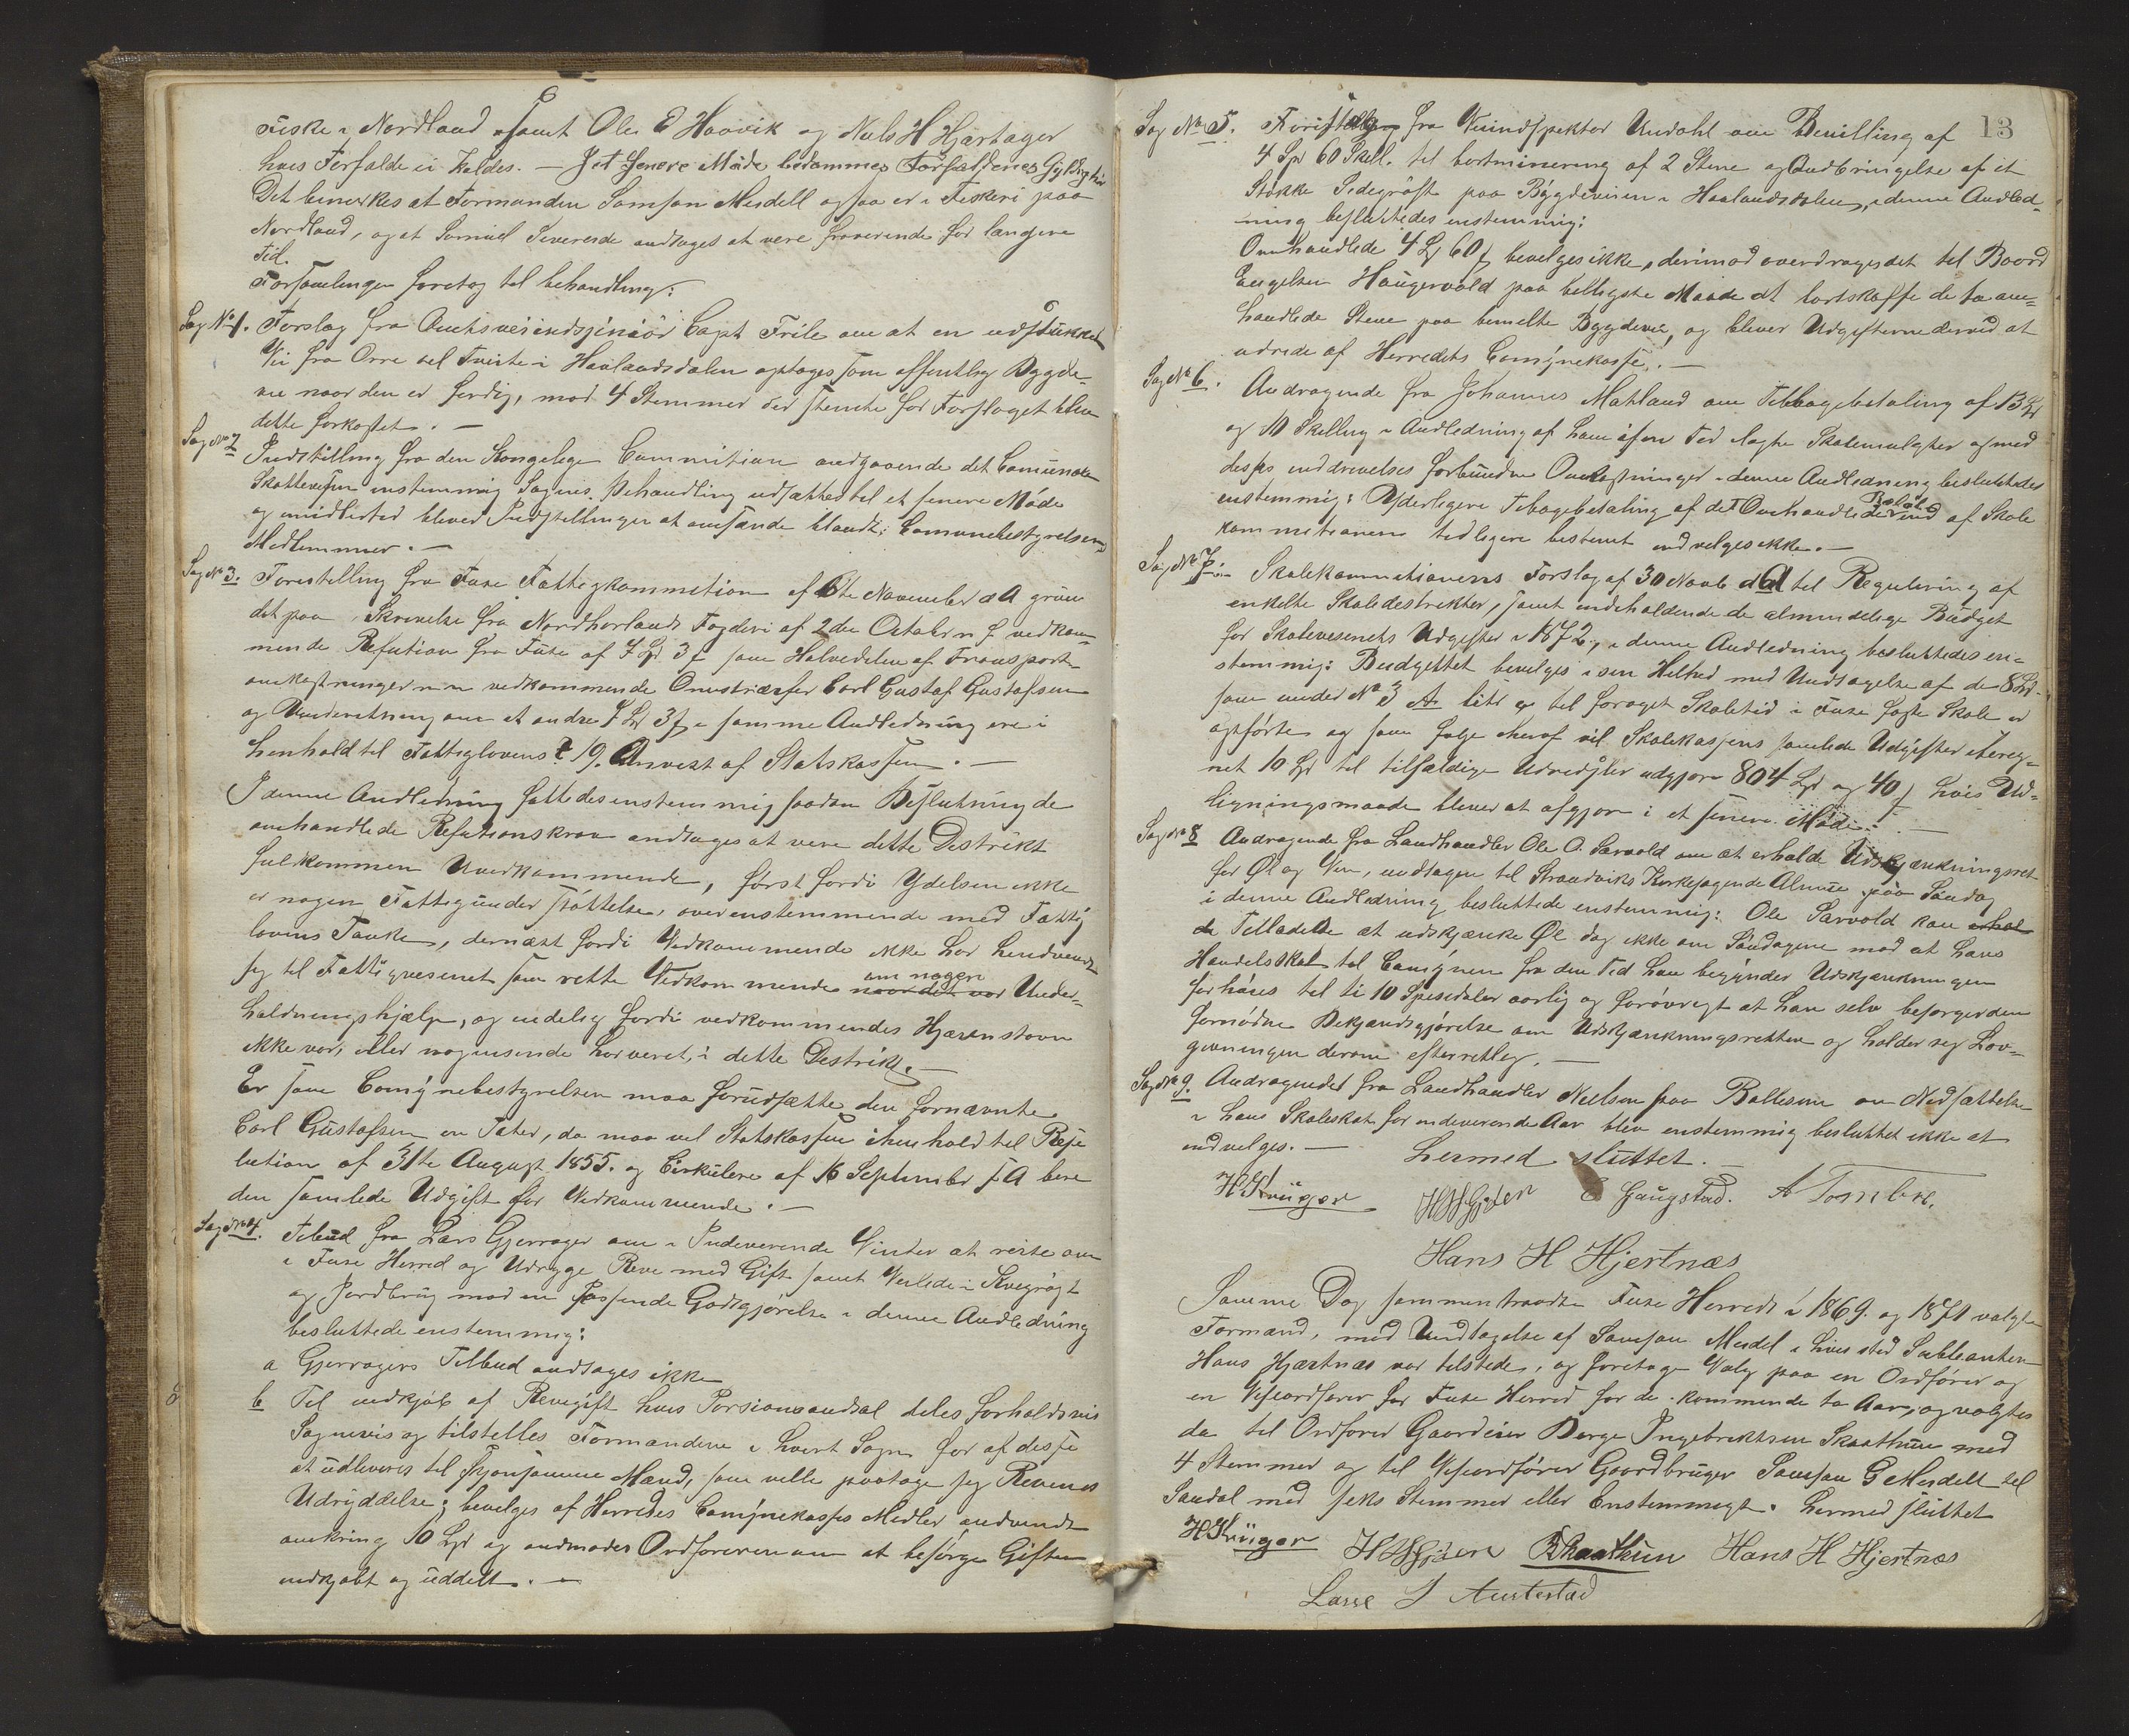 fiske i Nordland samt Ole E Haavik og Nils H Hjartager
hvis Forfalde ei Haldes. — I et senere Møde bedømmes Forfaldenes Gyldighed
Det bemærkes at Formanden Samson Meidell ogsaa er i Fiskeri paa
Nordland, og at Samuel Severeide andtages at være fraværende for længere
Tid.
Forsamlingen foretog til behandling:
Sag No 1. Forslag fra Amtsveiindsjeniør Capt Friis om at en udstukket
Vei fra Orre til Tveite i Haalandsdalen optages som offentlig Bygde-
vei naar den er færdig, mod 4 Stemmer der stemte for Forslaget blev
dette forkastet. —
Sag No 2 Indstilling fra den Kongelige Commition angaaende det Comunale
Skattevesen enstemmig Sagens Behandling udsættes til et senere Møde
og imidlertid bliver Indstillingen at omsænde blandt Comunebestyrelsens
Medlemmer. —
Sag No 3. Forestilling fra Fuse Fattigkommition af 6te November d A grun
det paa Skrivelse fra Nordhorlands Fogderi af 2den Octobr n f vedkom
mende Refution fra Fuse af 7 Spd 3 ß som Halvedelen af Transport-
omkostninger m m vedkommende Omstreifer Carl Gustaf Gustafsen
og Underretning om at andre 7 Spd 3 ß i samme Andledning ere i
henhold til Fattiglovens § 19. Anvist af Statskassen. —
I denne Andledning fattedes enstemmig saadan Beslutning de
omhandlede Refutionskrav andtages at være dette Destrikt
fulkommen Uvedkommende, først fordi Ydelsen ikke
er nogen Fattigunderstøttelse, overenstemmende med Fattig
lovens Tanke, dernæst fordi Vedkommende ikke har hendvendt
sig til Fattigvesenet som rette Vedkommende naar det var om nogen Under-
holdningshjælp, og endelig fordi vedkommendes Hjemstavn
ikke var, eller nogensinde har været, i dette Destrikt. —
Er som Comynebestyrelsen maa forudsætte den fornævnte
Carl Gustafsen en Tater, da maa vel Statskassen i henhold til Reso
lution af 31te August 1855. og Cirkulere af 16 September s A bere
den samlede Udgift for Vedkommende. —
Sag No 4. Tilbud fra Lars Gjerrager om i Indeværende Vinter at reise om
i Fuse Herred og Udrygge Reve med Gift samt Veilede i Kvegrøgt
og Jordbrug mod en passende Godtgjørelse i denne Andledning
besluttede enstemmig:
a Gjerragers Tilbud andtages ikke
b Til indkjøb af Revegift hvis Porsionsandtal deles forholdsvis
Sognevis og tilstelles Formændene i hvert Sogn for af disse
at udleveres til skjønsomme Mænd, som ville paatage sig Revenes
Udryddelse; bevilges af Herredes Comynekasses Midler andvendt
omkring 10 Spd og andmodes Ordføreren om at besørge Giften
indkjøbt og uddelt. —
13
Sag No 5. Forestilling fra Veiindspektør Undahl om Bevilling af
4 Spd 60 Skill. til bortminering af 2 Stene og Indbringelse af et
Stykke Sidegrøft paa Bygdeveien i Haalandsdalen, i denne Andled-
ning besluttedes enstemmig:
Omhandlede 4 Spd 60 ß bevilges ikke, derimod overdrages det til Baard
Engelsen Haugervold paa billigste Maade at bortskaffe de to om-
handlede Stene paa bemelte Bygdevei, og bliver Udgifterne derved at
udrede af Herredets Comynekasse. —
Sag No 6. Andragende fra Johannes Matland om Tilbagebetaling af 13 Spd
og 10 Skilling i Andledning af ham i sin Tid ilagte Skolemulgter og med
desses inddrivelses forbundne Omkostninger i denne Andledning besluttedes
enstemmig: Yderligere Tilbagebetaling af det Omhandlede Beløb end af Skole
kommitionen tidligere bestemt indvilges ikke. —
Sag No 7. Skolekommitionens Forslag af 30 Novb d A til Regulering af
enkelte Skoledestrikter, samt indeholdende de almindelige Budget
for Skolevesenets Udgifter i 1872, i denne Andledning besluttedes en-
stemmig: Budgettet bevilges i sin Helhed med Undtagelse af de 8 Spd
som under No 3 A litr g til forøget Skoletid i Fuse faste Skole er
opførte og som følge heraf vil Skolekassens samlede Udgifter ibereg-
net 10 Spd til tilfældige Udredsler udgjøre 804 Spd og 40 ß hvis Ud-
ligningsmaade bliver at afgjøre i et senere Møde. —
Sag No 8 Andragende fra Landhandler Ole O. Sævold om at erholde Udskjænkningsret
for Øl og Vin, undtagen til Strandviks Kirkesøgende Almue paa Søndag
i denne Andledning besluttede enstemmig: Ole Sævold kan erhol
de Tilladelse at udskjænke Øl dog ikke om Søndagene mod at hans
Handelsskat til Comynen fra den Tid han begynder Udskjænkningen
forhøies til ti 10 Spesidaler aarlig og forøvrigt at han selv besørger den
fornødne Bekjendtgjørelse om Udskjænkningsretten og holder sig Lov-
givningen derom efterrettelig. —
Sag No 9. Andragendet fra Landhandler Nielsen paa Baltesund om Nedsættelse
i hans Skoleskat for indeværende Aar blev enstemmig besluttet ikke at
indvilges. — Hermed sluttet. —
H Krüger HHGjøen E Gaugstad. A Tombre.
Hans H Hjertnæs
Samme Dag sammentraadte Fuse Herreds i 1869. og 1871 valgte
Formænd, med Undtagelse af Samson Meidel i hvis sted Subleanten
Hans Hjærtnæs var tilstede, og foretoge Valg paa en Ordfører og
en Viseordfører for Fuse Herred for de kommende to Aar, og valgtes
da til Ordfører Gaardeier Børge Ingebrektsen Skaathun med
4 Stemmer og til Viseordfører Gaardbruger Samson G Meidell til
Søndal med seks Stemmer eller Enstemmigt. Hermed sluttet
H Krüger HHGjøen BSkaathun Hans H Hjertnæs
Lasse J Austestad